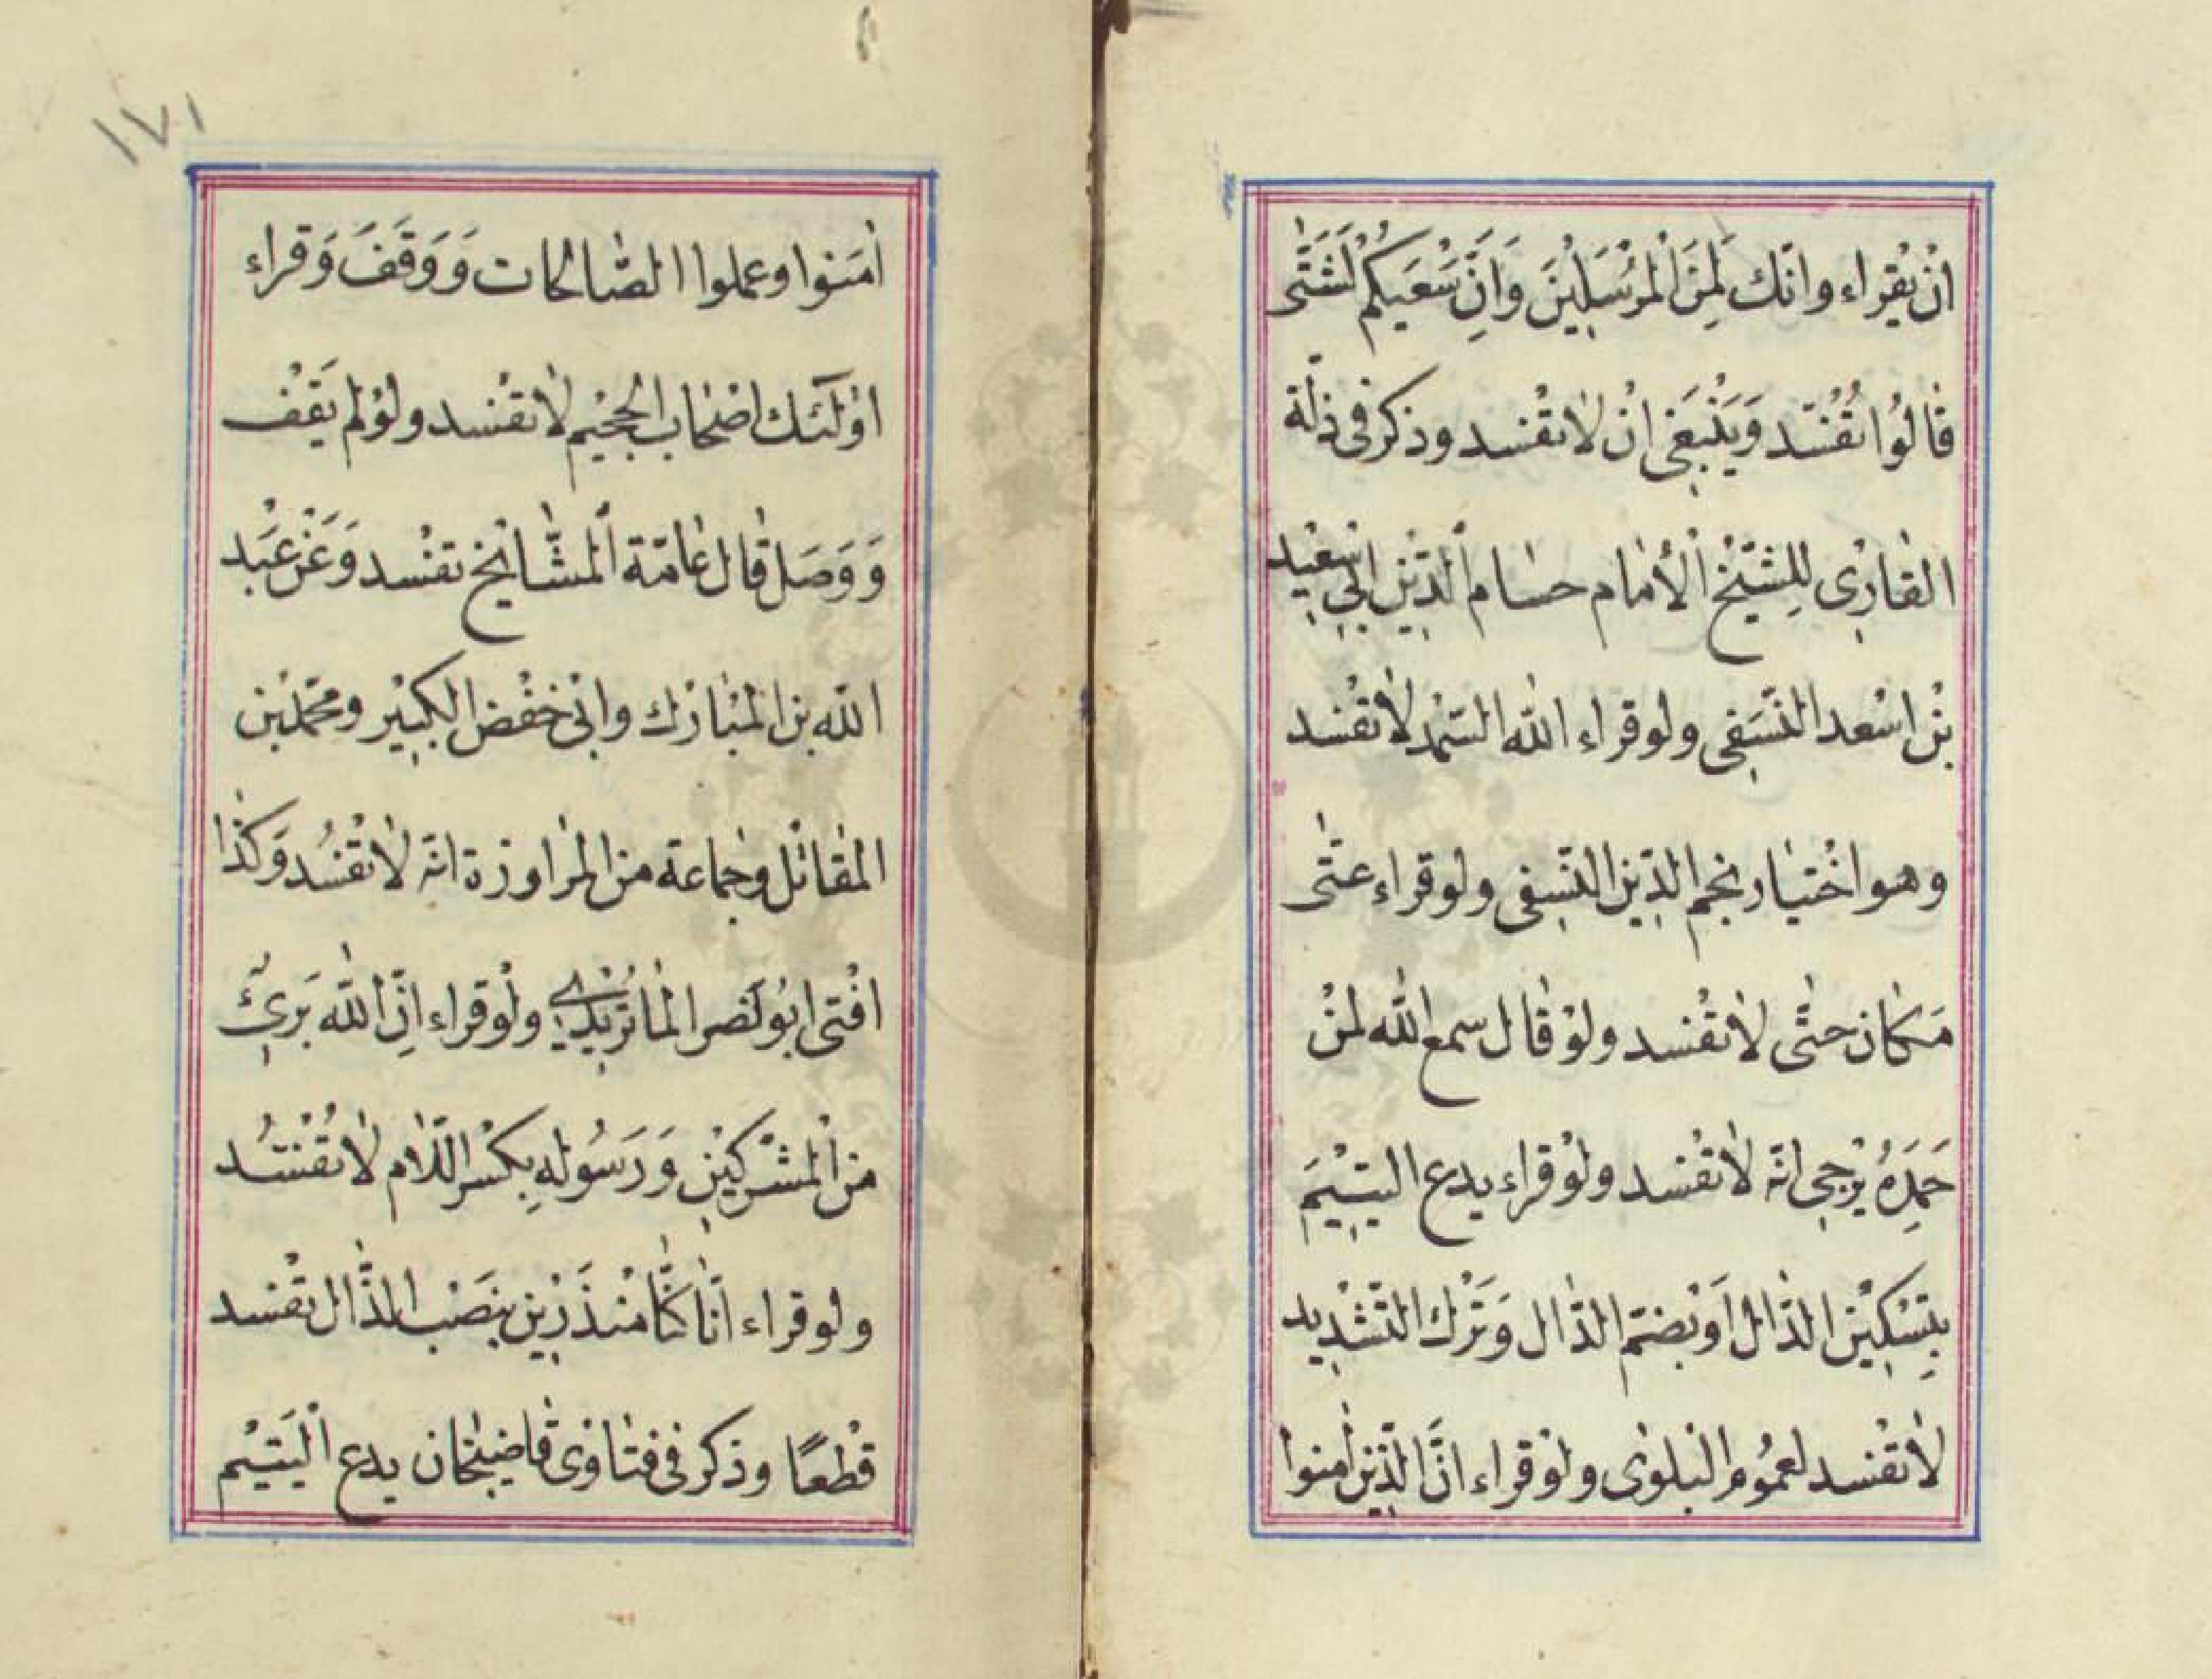 اَنْ يُقِرْاء وانّك لَمِنَ الْمُرْسَلِيْنَ وَاَنَّ سَعْيَكُمْ لَشَتّٰى
قٰالُوْا تَفْسُد وَيَنْبَغى انْ لاٰتفْسد وذكر فى زلّة
القٰارِى لِلشّيْخْ الْأمٰام حسٰام الدّيْن ابى سَعيْد
بْن اسْعد النّسَفى ولو قراء اللّٰه السّمد لاٰتفْسد
وهو اخْتيٰار نجم الدّين النّسفى ولو قراء عتّٰى
مَكان حتّٰى لاٰتفْسد ولوْ قٰال سمع اللّٰه لمنْ
حَمِدَهُ يُرْجى انّه لاٰتفْسد ولوْ قراء يدع اليتيْمَ
بتِسْكيْن الدّال اَوْ بضمّ الدّال وَتَرْك التّشْديد
لاٰتفْسد لعمُوم البلوٰى ولوْ قراء انَّ الّذين اٰمنوا
اٰمَنوا وعملوا الصّالحات وَوَقَفَ وَقراء
اوْلٓئك اصْحاب الجحيْم لاٰتفْسد ولوْلم يَقفْ
وَوَصَل قٰال عٰامّة الْمشٰايْخ تفْسد وَعَنْ عَبْد
اللّه بن المبٰارْك وابى حفْص الكبيْر ومحمّد بْن
المقٰاتل وجماعة من المراوزة انّه لاٰتفْسُد وَكذا
افْتى ابُو نَصر المٰاتُريدى ولَوْ قراء اِنَّ اللّٰه بَرئٌ
من الْمشْركيْن وَرَسُولهِ بكسْر اللّام لاٰتفْسُد
ولو قراء انّا كنّٰا منْذَريْن بنَصْب الذّال تفْسد
قطْعًا وذكر فى فتاوٰى قٰاضيخان يدع الْيَتيْم
١٧١